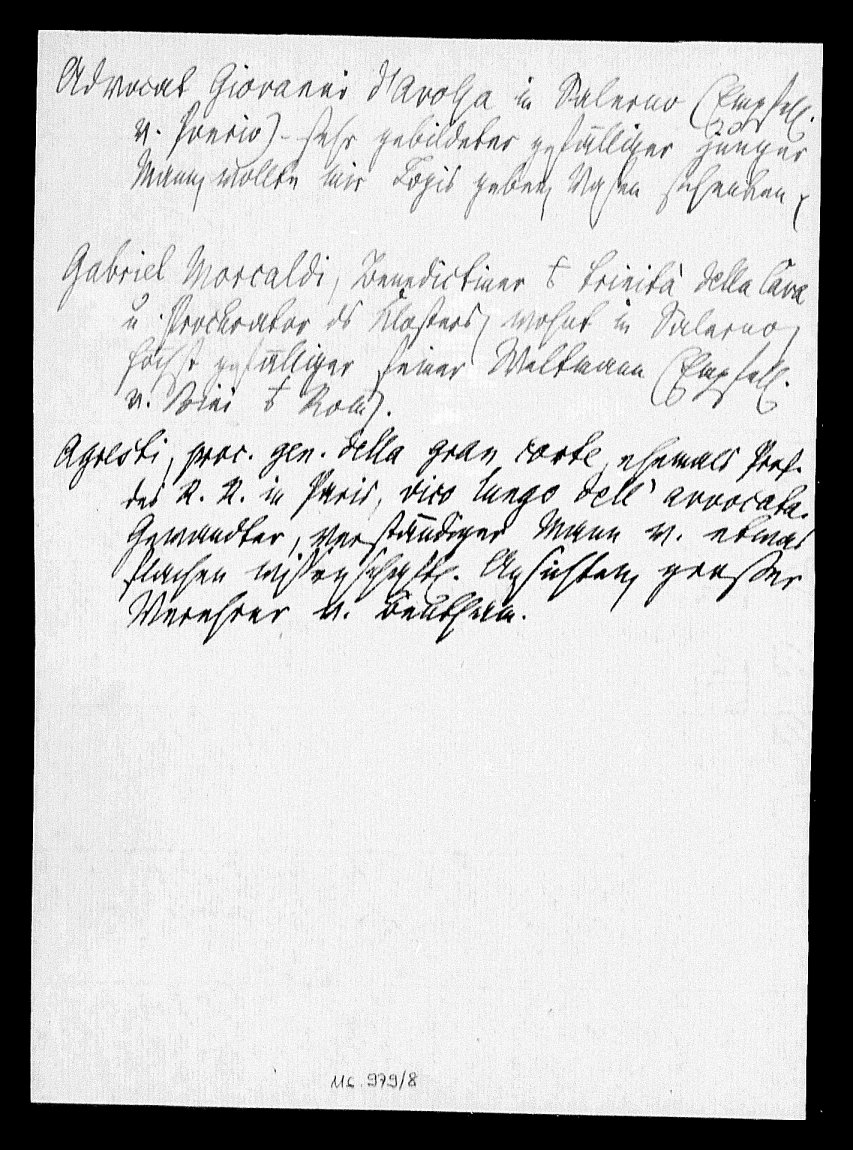 Advocat Giovanni d'Avossa in Salerno (Empfehl.
v. Poerio) – sehr gebildeter gefälliger junger
Mann, wollte mir Logis geben, Vasen schenken
Gabriel Morcaldi, Benedictiner Trinità della Cava
u. Procurator ds Klosters, wohnt in Salerno,
höchst gefälliger feiner Weltmann (Empfehl.
v. Rom).
Agresti, proc. gen. della gran corte, ehemals Prof.
des R. R. in Paris, vico lungo dell' avvocata.
Gewandter, verständiger Mann v. etwas
flachen wissenschaftl. Ansichten, grosser
Verehrer v. Bentham.
Mc 979/8